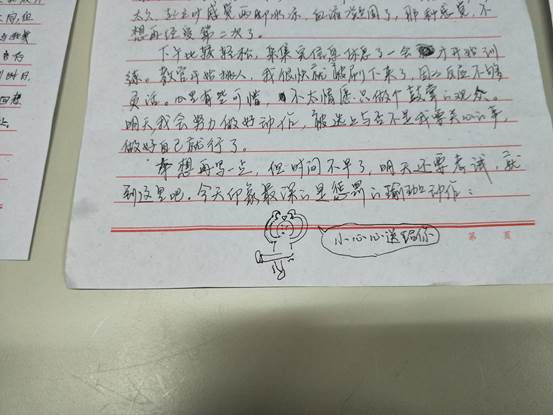 太久,起立时感觉两脚冰冻,血液凝固了,那种感觉,不
想再经受第二次了。
下午比较轻松,采集完信息休息了一会 方开始训
练。教官开始挑人,我很快就被刷下来了,因为反应不够
灵活。心里有些可惜, 不太情愿只做个鼓掌的观众。
明天我会努力做好动作,被选上与否不是我要关心的事,
做好自己就行了。
本想再写一点,但时间不早了,明天还要考试,就
到这里吧。今天印象最深的是您罚的瑜珈动作:
小心心送给你
第 页